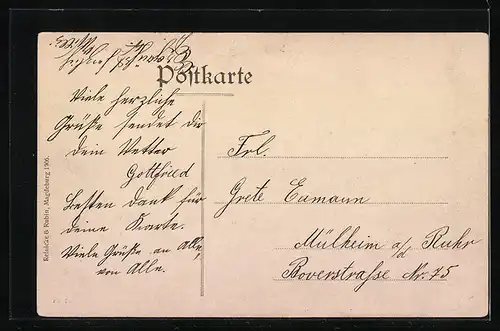 Postkarte
Viele herzliche
Grüße sendet dir
dein Vetter
Gottfried
Besten Dank für
deine Karte.
Viele Grüße an Alle,
von Alle.
Frl.
Grete Eamann
Mülheim a/d Ruhr
Boverstraße Nr. 75
Reinicke & Rubin, Magdeburg 1906.